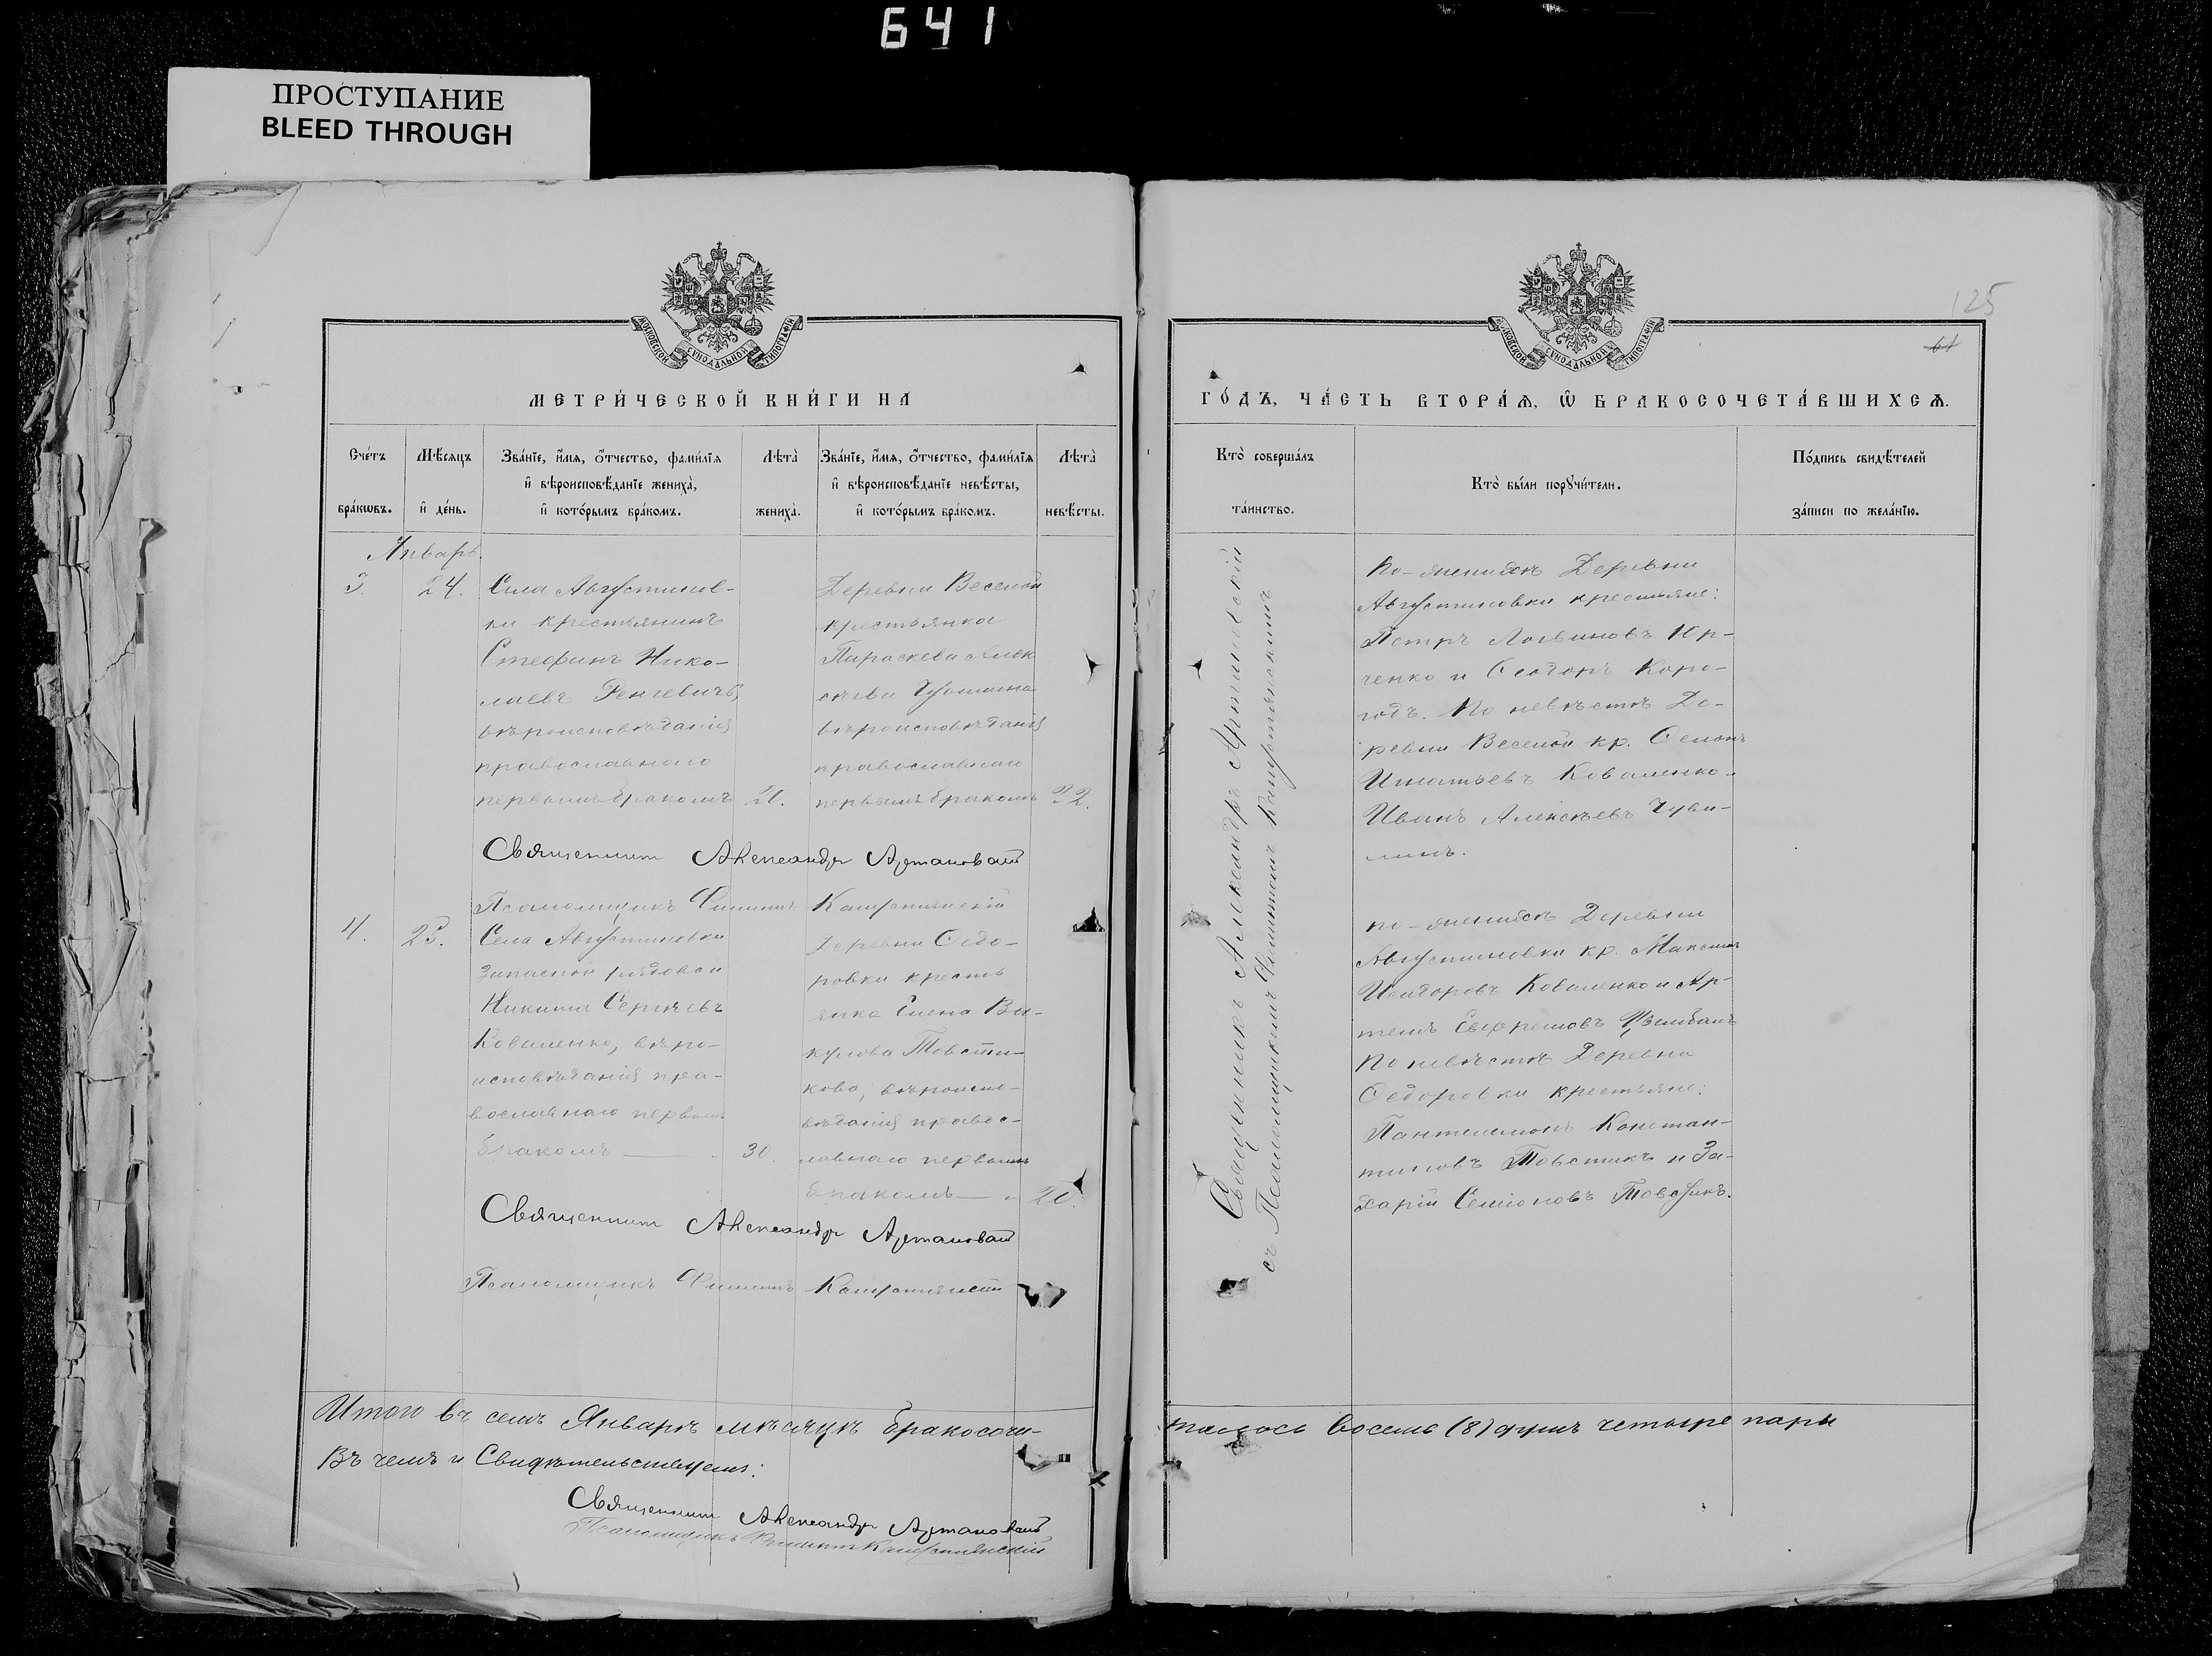 641
ПРОСТУПАНИЕ
BLEED THROUGH
МОСКОВСКОЙ СУНОДАЛЬНОЙ ТИПОГРАФІИ
МЕТРИ́ЧЕСКОЙ КНИ́ГИ НА
Сче́тъ бра́кѡвъ.
Мѣ́сяцъ и҆ де́нь.
Зва́нїе, и҆́мѧ, ѻ҆́тчество, фами́лїѧ
и҆ вѣроисповѣ́данїе жениха̀,
и҆ кото́рымъ бра́комъ.
Лѣта̀ жениха̀.
Зва́нїе, и҆́мѧ, ѻ҆́тчество, фами́лїѧ
и҆ вѣроисповѣ́данїе невѣ́сты,
и҆ кото́рымъ бра́комъ.
Лѣта̀ невѣ́сты.
Январь.
3.
24.
Села Августинов-
ки крестьянинъ
Стефанъ Нико-
лаевъ
вѣроисповѣданія
православнаго
первымъ бракомъ 21.
Деревни Веселой
крестьянка
Параскева Алек
сѣева
вѣроисповѣданія
православнаго
первымъ бракомъ 22.
Священникъ Александръ
Псаломщикъ Филиппъ
4.
25.
Села Августиновки
запасной рядовой
Никита Сергѣевъ
Коваленко, вѣро-
исповѣданія пра-
вославнаго первымъ
бракомъ 30.
Деревни Ѳедо-
ровки кресть
янка Елена Ва-
кулова Товсти-
кова, вѣроиспо-
вѣданія правос-
лавнаго первымъ
бракомъ 20.
Священникъ Александръ
Псаломщикъ Филиппъ
Итого въ семъ Январѣ мѣсяцѣ бракосоче-
Въ чемъ и Свидѣтельствуемъ:
Священникъ Александръ
Псаломщикъ Филиппъ
125
61
МОСКОВСКОЙ СУНОДАЛЬНОЙ ТИПОГРАФІИ
ГО́ДЪ, ЧА́СТЬ ВТОРА́Ѧ, Ѡ҆ БРАКОСОЧЕТА́ВШИХСѦ.
Кто̀ соверша́лъ та́инство.
Кто̀ бы́ли порꙋчи́тели.
По́дпись свидѣ́телей
за́писи по жела́нїю.
Священникъ Александръ
съ Псаломщикомъ Филиппомъ
По-женихѣ Деревни
Августиновки крестьяне:
Петръ Логвиновъ Юр-
ченко и Ѳеодоръ Коро-
годъ. По невѣстѣ Де-
ревни Веселой кр. Семонъ
Игнатьевъ Коваленко
Иванъ Алексѣевъ Чуви-
линъ.
по-женихѣ Деревни
Августиновки кр. Максимъ
Исидоровъ Коваленко и Ар-
темъ Евфремовъ
По невѣстѣ Деревни
Ѳедоровки крестьяне:
Пантелемонъ Констан-
тиновъ Товстикъ и За-
харій Семіоновъ Товстикъ.
талось восемь (8) душъ четыре пары